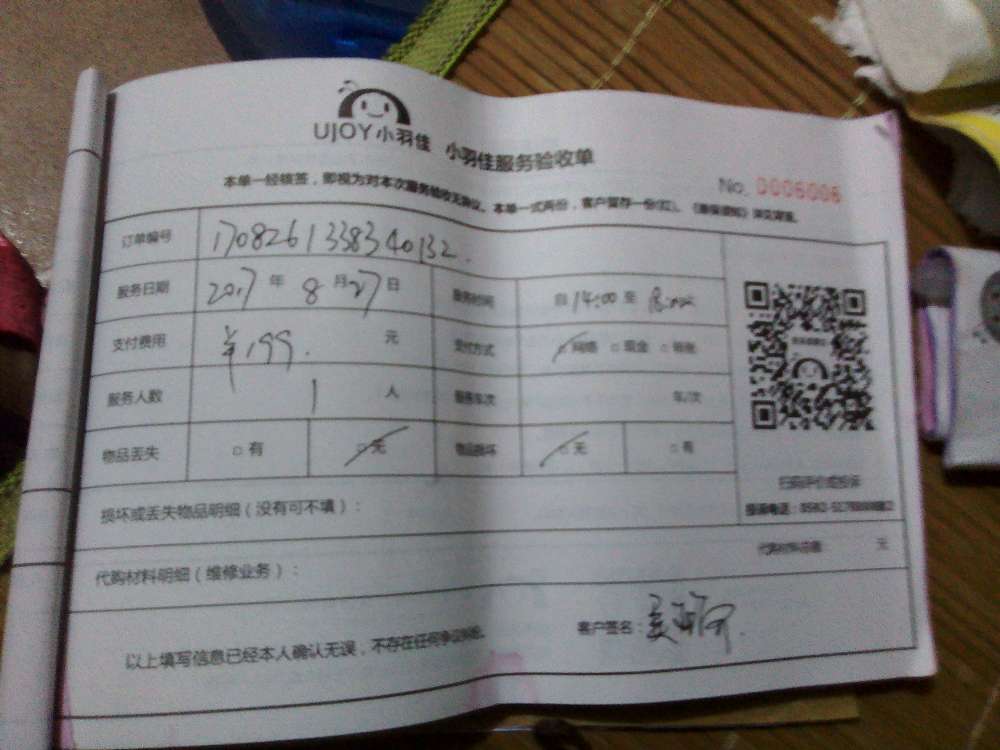 UJOY小羽佳 小羽佳服务验收单
No. 0006006
本单一经核签，即视为对本次服务验收无异议。本单一式两份，客户留存一份(红)。
订单编号 1708261338340132.
服务日期 2017 年 8 月 27 日 服务时间 自 14:00 至
支付费用 ¥199. 元 支付方式 □ 网络 □ 现金 □ 转账
服务人数 1 人 服务车次 车/次
物品丢失 □ 有 □ 无 物品损坏 □ 无 □ 有
扫码评价或投诉
损坏或丢失物品明细（没有可不填）：
投诉电话：
代购材料明细（维修业务）： 代购材料总额 元
以上填写信息已经本人确认无误，不存在任何争议纠纷。 客户签名：